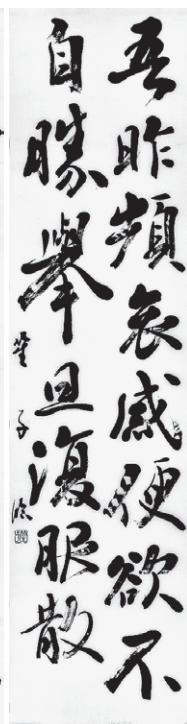 吾昨頻哀感便欲不
自勝舉旦復服散